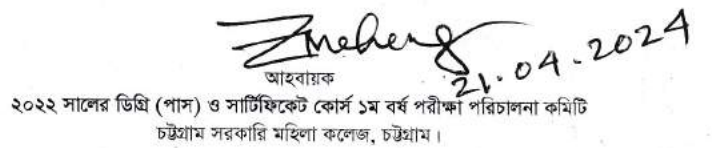 21.04.2024
আহবায়ক
২০২২ সালের ডিগ্রি (পাস) ও সার্টিফিকেট কোর্স ১ম বর্ষ পরীক্ষা পরিচালনা কমিটি
চট্টগ্রাম সরকারি মহিলা কলেজ, চট্টগ্রাম।